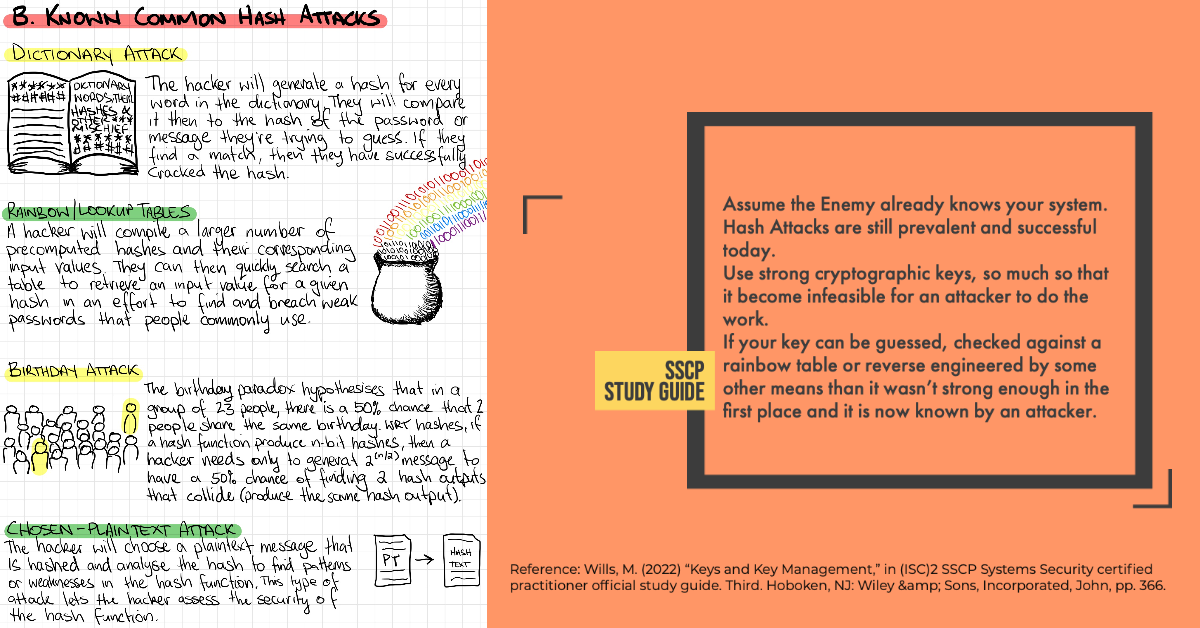 B. KNOWN COMMON HASH ATTACKS
DICTIONARY ATTACK
DICTIONARY
WORDS, THEIR
HASHES &
OTHER
MISCHIEF
The hacker will generate a hash for every
word in the dictionary. They will compare
it then to the hash of the password or
message they're trying to guess. If they
find a match, then they have successfully
cracked the hash.
RAINBOW/LOOKUP TABLES
A hacker will compile a larger number of
precomputed hashes and their corresponding
input values. They can then quickly search a
table to retrieve an input value for a given
hash in an effort to find and breach weak
passwords that people commonly use.
BIRTHDAY ATTACK
The birthday paradox hypothesises that in a
group of 23 people, there is a 50% chance that 2
people share the same birthday. WRT hashes, if
a hash function produce n-bit hashes, then a
hacker needs only to generat 2^(n/2) message to
have a 50% chance of finding 2 hash outputs
that collide (produce the same hash output).
CHOSEN-PLAINTEXT ATTACK
The hacker will choose a plaintext message that
is hashed and analyse the hash to find patterns
or weaknesses in the hash function. This type of
attack lets the hacker assess the security of
the hash function.
PT
HASH
TEXT
Assume the Enemy already knows your system.
Hash Attacks are still prevalent and successful
today.
Use strong cryptographic keys, so much so that
it become infeasible for an attacker to do the
work.
If your key can be guessed, checked against a
rainbow table or reverse engineered by some
other means than it wasn't strong enough in the
first place and it is now known by an attacker.
SSCP
STUDY GUIDE
Reference: Wills, M. (2022) "Keys and Key Management," in (ISC)2 SSCP Systems Security certified
practitioner official study guide. Third. Hoboken, NJ: Wiley &amp; Sons, Incorporated, John, pp. 366.